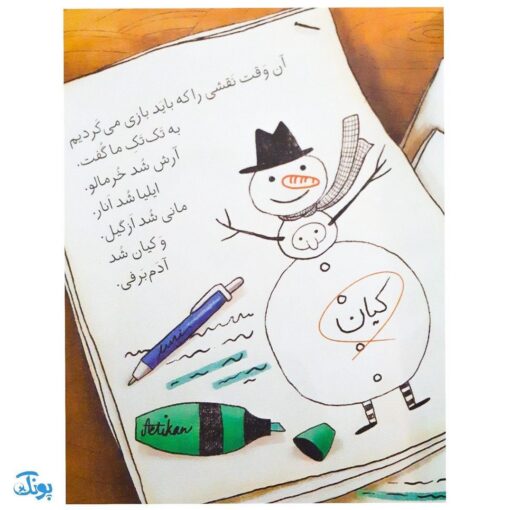 آن وَقت نَقشی را که بایَد بازی می‌کَردیم
به تَک‌تَکِ ما گُفت.
آرش شُد خُرمالو.
ایلیا شُد اَنار.
مانی شُد اَزگیل.
وَ کیان شُد
آدَم‌بَرفی.
کیان
Aetikan
پونک